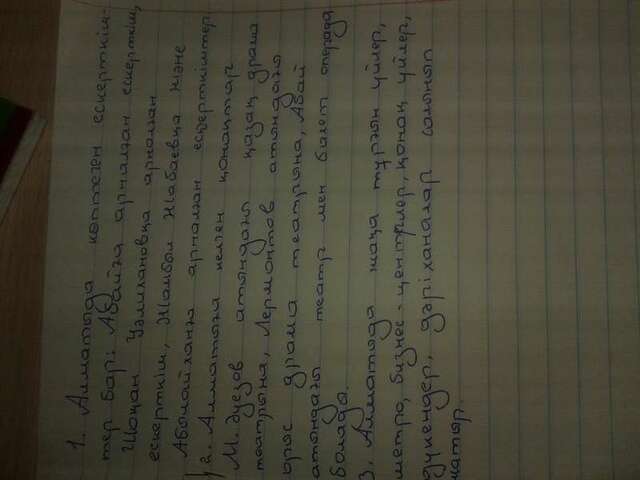 1. Алматыда көптеген ескерткіш-
тер бар: Абайға арналған ескерткіш,
Шоқан Уәлихановқа арналған
ескерткіш, Жамбыл Жабаевқа және
Абылайханға арналған ескерткіштер
2. Алматыға келген қонақтар
М. Әуезов атындағы қазақ драма
театрына, Лермонтов атындағы
орыс драма театрына, Абай
атындағы театр мен балет операда
болады.
3. Алматыда жаңа тұрғын үйлер,
метро, бизнес-центрлер, қонақ үйлер,
дүкендер, дәріханалар салынып
жатыр.